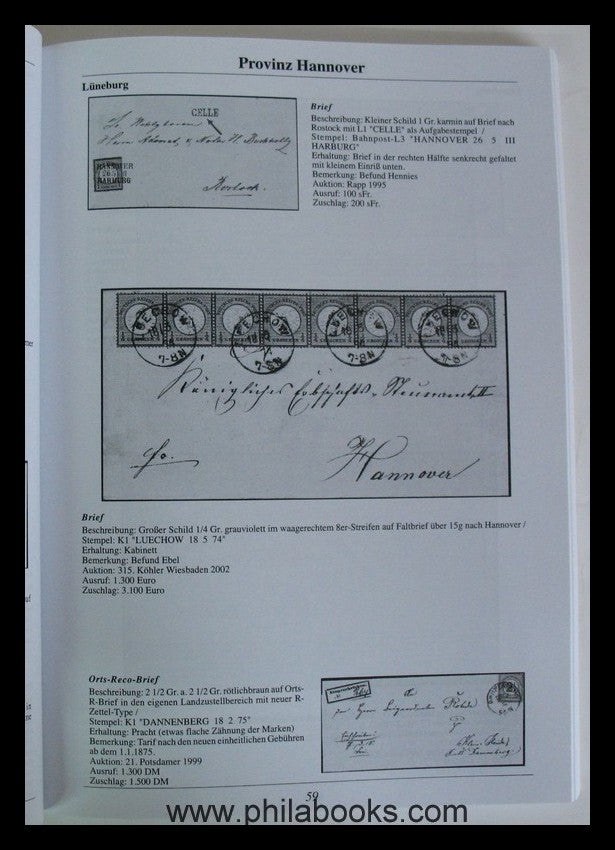 Provinz Hannover
Lüneburg
CELLE
HANNOVER
26 5 III
HARBURG
Rostock.
Brief
Beschreibung: Kleiner Schild 1 Gr. karmin auf Brief nach
Rostock mit L1 "CELLE" als Aufgabestempel /
Stempel: Bahnpost-L3 "HANNOVER 26 5 III
HARBURG"
Erhaltung: Brief in der rechten Hälfte senkrecht gefaltet
mit kleinem Einriß unten.
Bemerkung: Befund Hennies
Auktion: Rapp 1995
Ausruf: 100 sFr.
Zuschlag: 200 sFr.
Königliches Erbschafts-Steueramt
Hannover
Brief
Beschreibung: Großer Schild 1/4 Gr. grauviolett im waagerechtem 8er-Streifen auf Faltbrief über 15g nach Hannover /
Stempel: K1 "LUECHOW 18 5 74"
Erhaltung: Kabinett
Bemerkung: Befund Ebel
Auktion: 315. Köhler Wiesbaden 2002
Ausruf: 1.300 Euro
Zuschlag: 3.100 Euro
Orts-Reco-Brief
Beschreibung: 2 1/2 Gr. a. 2 1/2 Gr. rötlichbraun auf Orts-
R-Brief in den eigenen Landzustellbereich mit neuer R-
Zettel-Type /
Stempel: K1 "DANNENBERG 18 2 75"
Erhaltung: Pracht (etwas flache Zähnung der Marken)
Bemerkung: Tarif nach den neuen einheitlichen Gebühren
ab dem 1.1.1875.
Auktion: 21. Potsdamer 1999
Ausruf: 1.300 DM
Zuschlag: 1.500 DM
59
www.philabooks.com